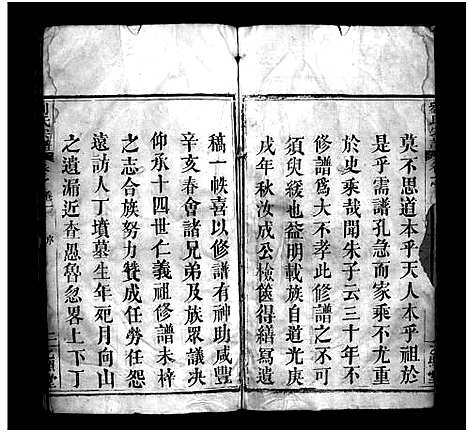 莫不思道本乎天人本乎祖於
是乎需譜孔急而家乘不尤重
於史乘哉聞朱子云三十年不
修譜爲大不孝此修譜之不可
須臾緩也益明載族自道光庚
戌年秋汝成公檢篋得繕寫遺
稿一帙喜以修譜有神助咸豐
辛亥春會諸兄弟及族眾議決
仰承十四世仁義祖修譜未梓
之志合族努力贊成任勞任怨
遠訪人丁墳墓生年死月向山
之遺漏近查愚魯忽畧上下丁
序